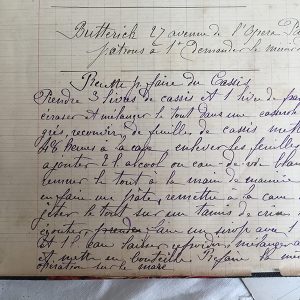 Butterick 27 avenue de l'Opera Pa
patrons à 1f Demander le mois
Recette p. faire du Cassis
Prendre 3 livres de cassis et 1 livre de fram
écraser et mélanger le tout dans une casserole
grès, recouvrir de feuilles de cassis mett
48 heures à la cave, enlever les feuilles
ajouter 2 l alcool ou eau-de-vie blan
remuer le tout à la main de manière
en faire une pâte, remettre à la cave
jeter le tout sur un tamis de crin
égoutter faire un sirop avec 1
et 1 l eau laisser refroidir mélanger
et mettre en bouteille Refaire la mê
opération sur le marc